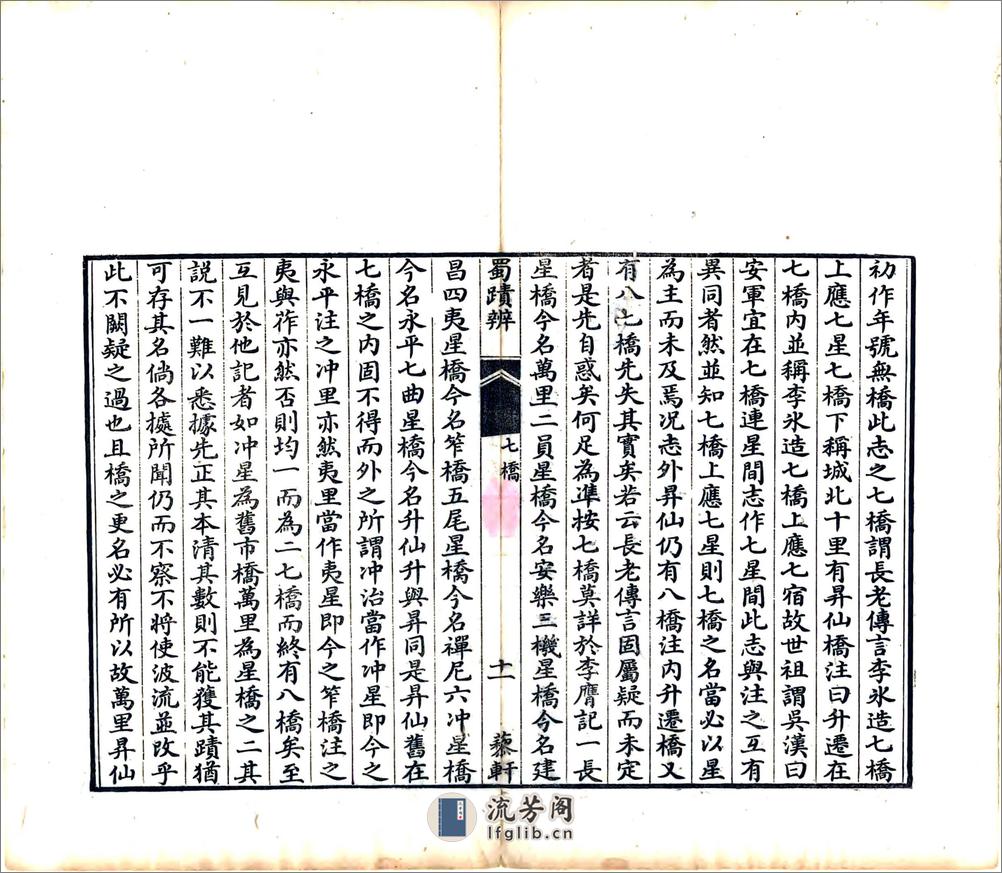 初作年號無橋此志之七橋謂長老傳言李氷造七橋
上應七星七橋下稱城北十里有昇仙橋注曰升遷在
七橋内並稱李氷造七橋上應七宿故世祖謂吳漢曰
安軍宜在七橋連星間志作七星間此志與注之互有
異同者然並知七橋上應七星則七橋之名當必以星
為主而未及焉况志外昇仙仍有八橋注内升遷橋又
有八七橋先失其實矣若云長老傳言固屬疑而未定
者是先自惑矣何足為準桉七橋莫詳於李膺記一長
星橋今名萬里二員星橋今名安樂三機星橋今名建
蜀蹟辨
七橋
十一
藜軒
昌四夷星橋今名笮橋五尾星橋今名禪尼六冲星橋
今名永平七曲星橋今名升仙升與昇同是昇仙舊在
七橋之内固不得而外之所謂冲治當作冲星即今之
永平注之冲里亦然夷里當作夷星即今之笮橋注之
夷與莋亦然否則均一而為二七橋而終有八橋矣至
互見於他記者如冲星為舊市橋萬里為星橋之二其
説不一難以悉據先正其本清其數則不能獲其蹟猶
可存其名倘各據所聞仍而不察不將使波流並改乎
此不闕疑之過也且橋之更名必有所以故萬里昇仙
流芳阁
lfglib.cn